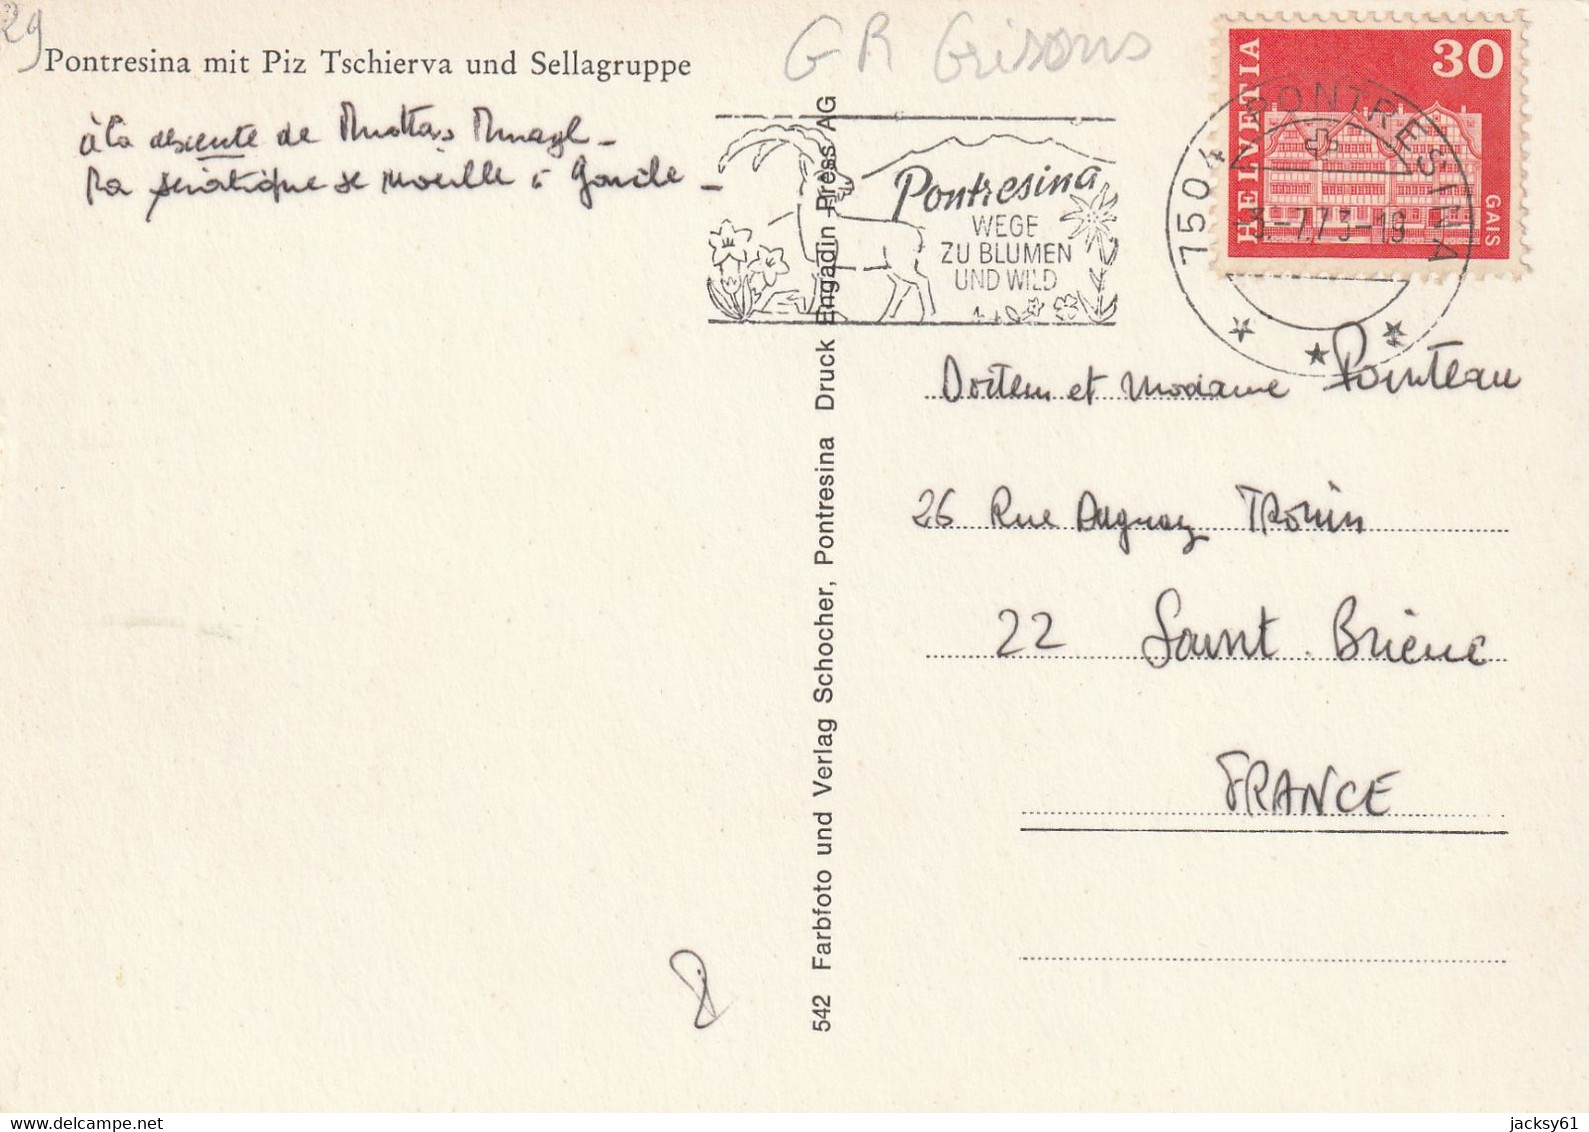 29
GR Grisons
Pontresina mit Piz Tschierva und Sellagruppe
à la descente de Muottas Muragl -
se à -
Pontresina
WEGE
ZU BLUMEN
UND WILD
7504 PONTRESINA
-3.-7.73-19
HELVETIA
30
GAIS
Docteur et Madame Pointeau
26 Rue Duguay Trouin
22 Saint Brieuc
FRANCE
542 Farbfoto und Verlag Schocher, Pontresina Druck Engadin Press AG
www.delcampe.net
jacksy61